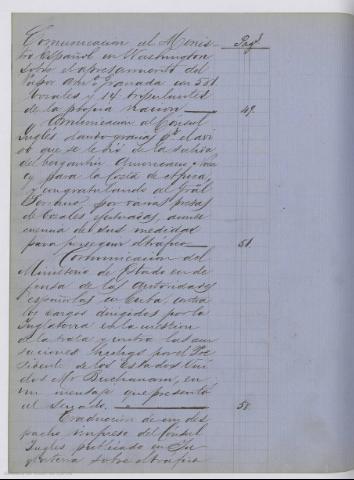 Comunicacion al Minis- Pag.s
tro Español en Washington
sobre el apresamiento del
Vapor Granada con
bozales y 14 tripulantes
de la propia nacion 49.
Comunicacion al Consul
Inglés dando gracias por el avi
so que se le dió de la salida
del bergantin Americano
para la Costa de Africa,
y congratulando al Gral
por varias presas
de bozales efectuadas, dando
cuenta de sus medidas
para perseguir el tráfico 51.
Comunicacion del
Ministerio de Estado en de
fensa de las Autoridades
españolas en Cuba contra
los cargos dirigidos por la
Inglaterra en la cuestion
de la trata y contra las acu
saciones hechas por el Pre
sidente de los Estados Uni
dos Mr Buchanan, en
un mensaje que presentó
al Senado. 58
Traduccion de un des
pacho impreso del Consul
Ingles publicado en In
glaterra sobre el tráfico